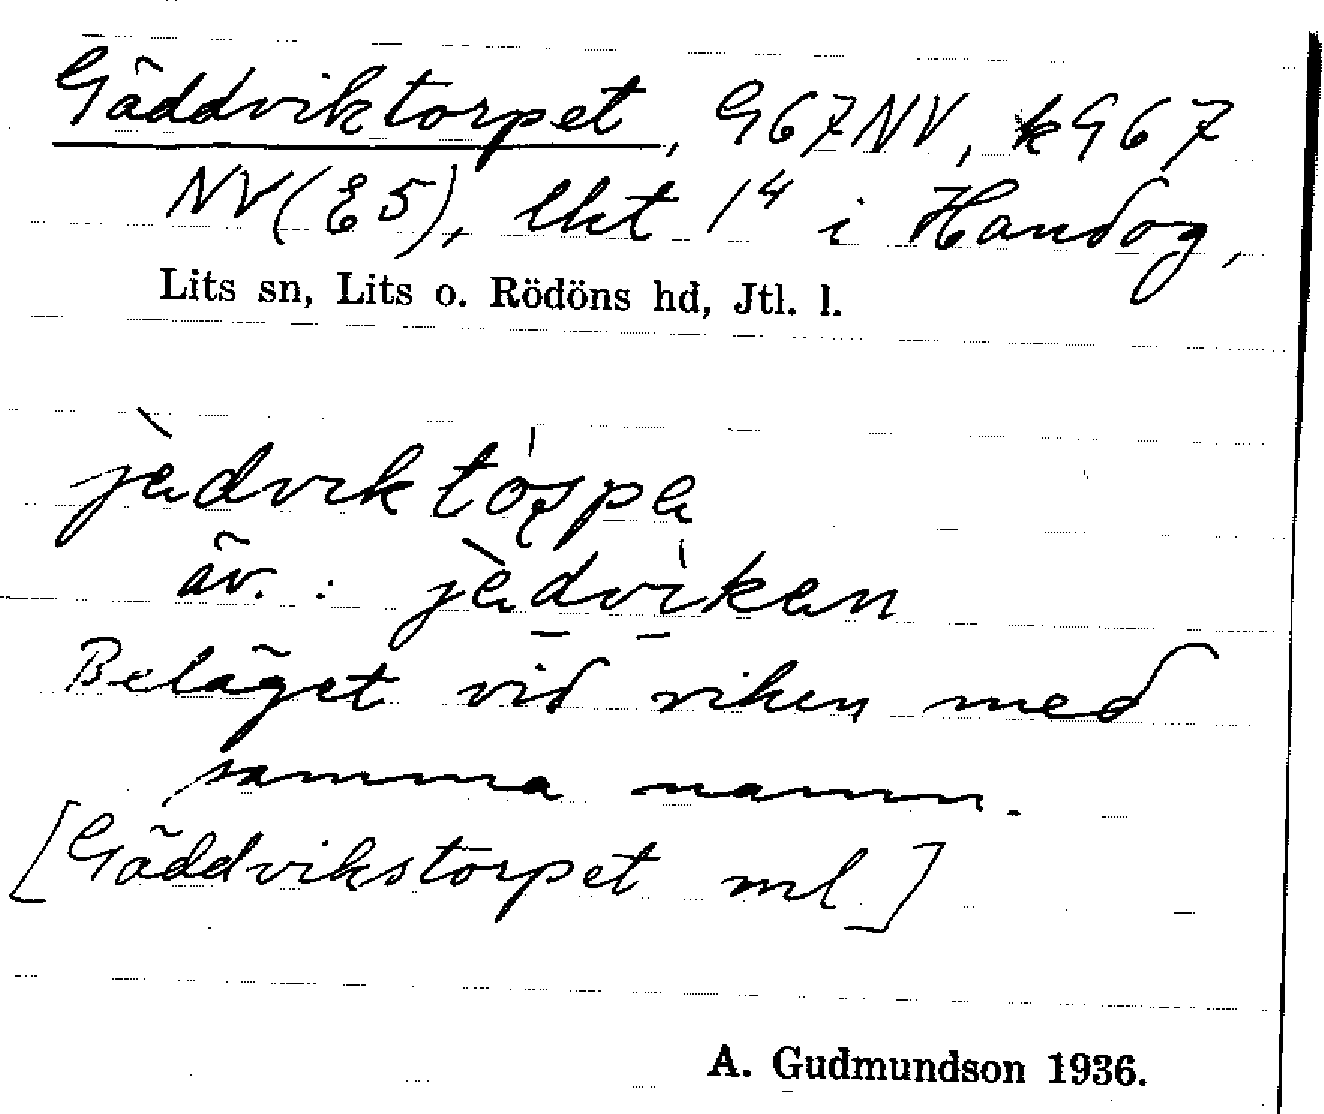 Gäddviktorpet, G67NV, kG67
NV(E5), lht 1⁴ i Handog,
Lits sn, Lits o. Rödöns hd, Jtl. l.
äv. :
Beläget vid viken med
samma namn.
[Gäddvikstorpet ml]
A. Gudmundson 1936.